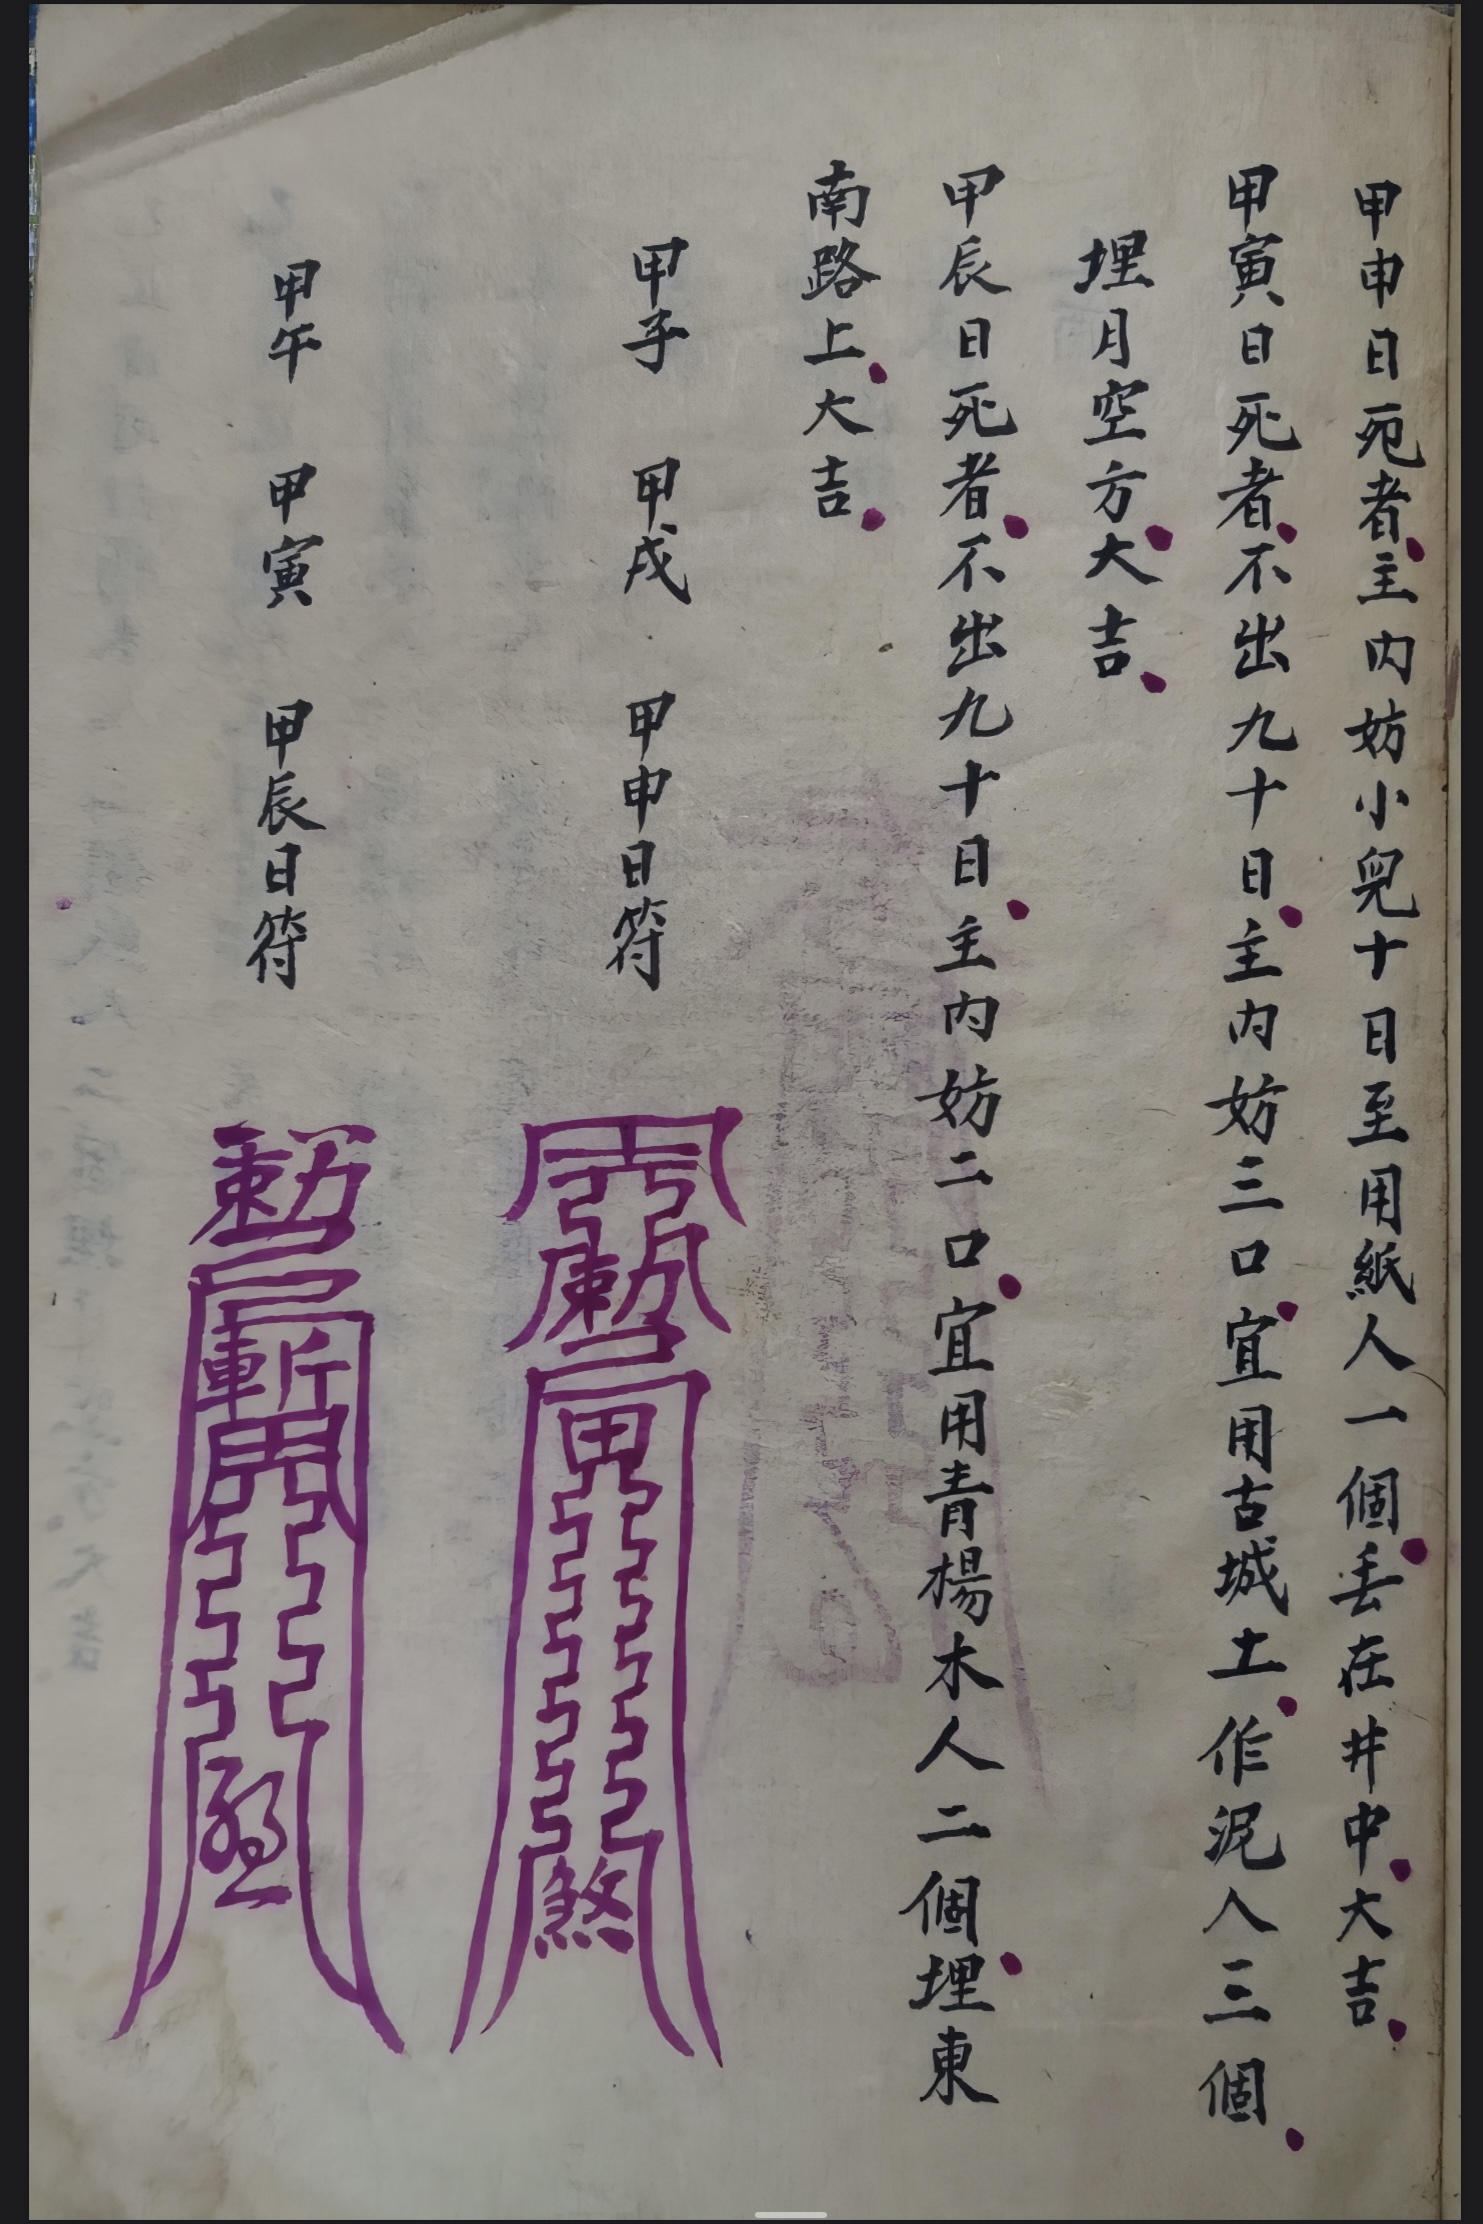 甲申日死者主内妨小兒十日至用紙人一個丢在井中大吉
甲寅日死者不出九十日主内妨三口宜用古城土作泥人三個
埋月空方大吉
甲辰日死者不出九十日主内妨二口宜用青楊木人二個埋東
南路上大吉
甲子 甲戌 甲申日符
甲午 甲寅 甲辰日符